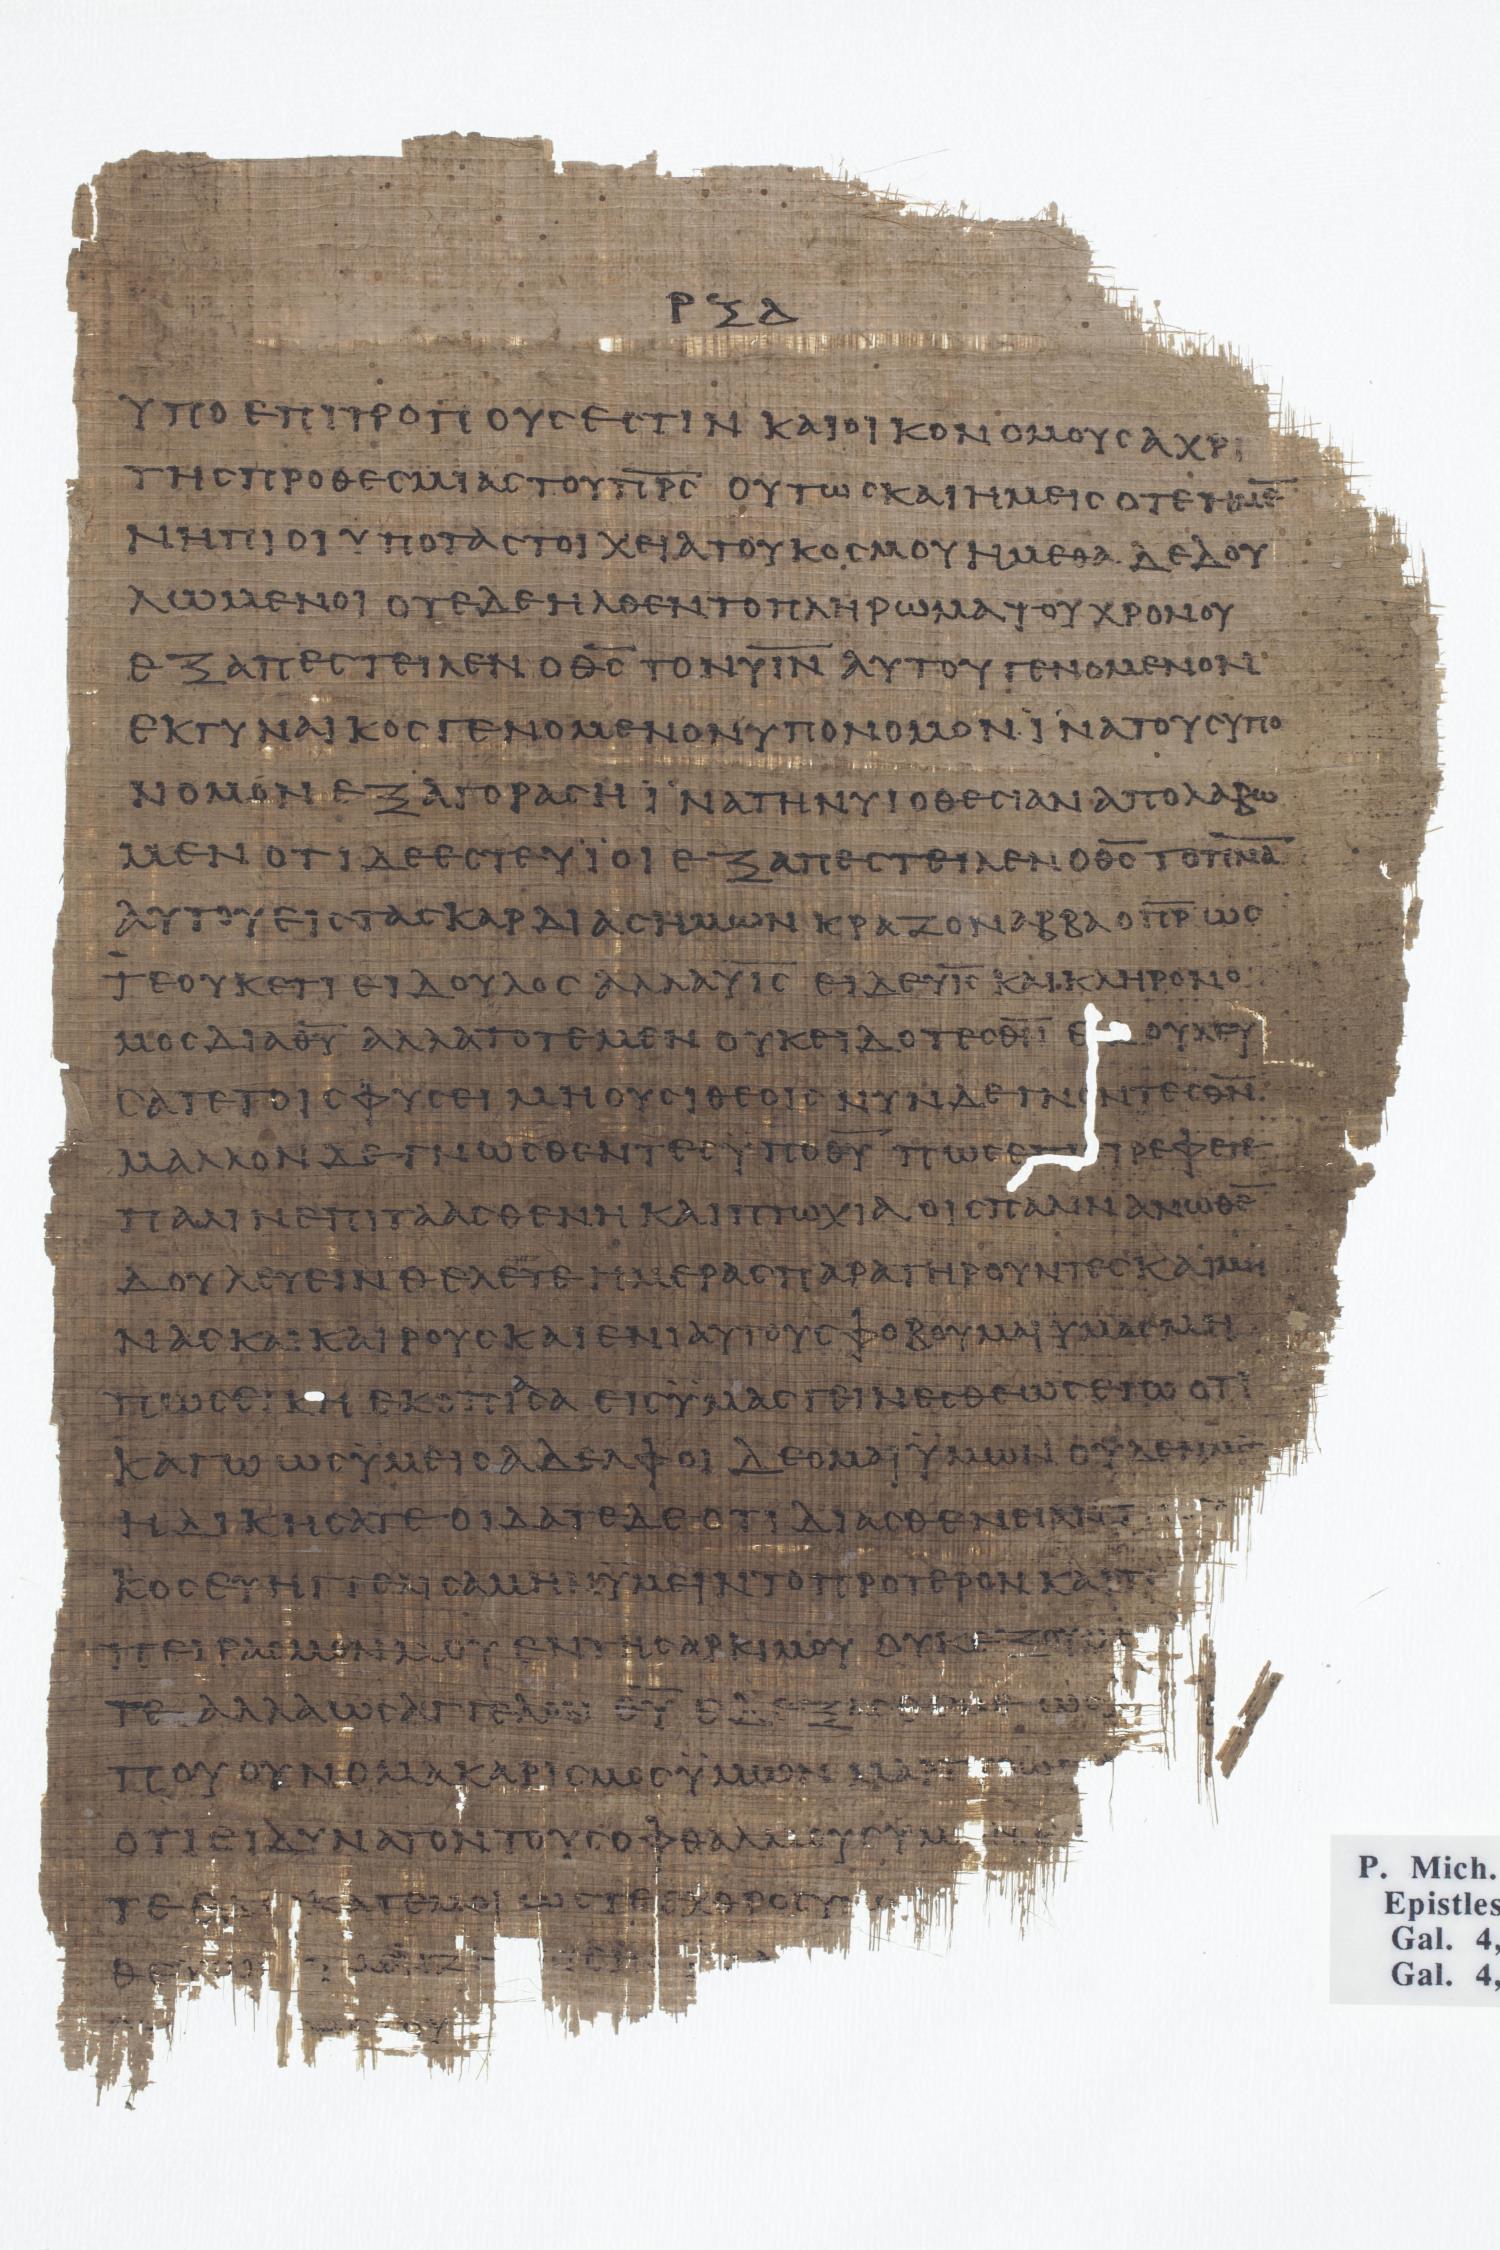 ΡΞΔ
ΥΠΟ ΕΠΙΤΡΟΠΟΥΣ ΕΣΤΙΝ ΚΑΙ ΟΙΚΟΝΟΜΟΥΣ ΑΧΡΙ
ΤΗΣ ΠΡΟΘΕΣΜΙΑΣ ΤΟΥ Π̅Ρ̅Σ̅ ΟΥΤΩΣ ΚΑΙ ΗΜΕΙΣ ΟΤΕ ΗΜΕ̅
ΝΗΠΙΟΙ ΥΠΟ ΤΑ ΣΤΟΙΧΕΙΑ ΤΟΥ ΚΟΣΜΟΥ ΗΜΕΘΑ ΔΕΔΟΥ
ΛΩΜΕΝΟΙ ΟΤΕ ΔΕ ΗΛΘΕΝ ΤΟ ΠΛΗΡΩΜΑ ΤΟΥ ΧΡΟΝΟΥ
ΕΞΑΠΕΣΤΕΙΛΕΝ Ο Θ̅Σ̅ ΤΟΝ Υ̅Ι̅Ν̅ ΑΥΤΟΥ ΓΕΝΟΜΕΝΟΝ
ΕΚ ΓΥΝΑΙΚΟΣ ΓΕΝΟΜΕΝΟΝ ΥΠΟ ΝΟΜΟΝ ΪΝΑ ΤΟΥΣ ΥΠΟ
ΝΟΜΟΝ ΕΞΑΓΟΡΑΣΗ ΪΝΑ ΤΗΝ ΥΙΟΘΕΣΙΑΝ ΑΠΟΛΑΒΩ
ΜΕΝ ΟΤΙ ΔΕ ΕΣΤΕ ΥΪΟΙ ΕΞΑΠΕΣΤΕΙΛΕΝ Ο Θ̅Σ̅ ΤΟ Π̅Ν̅Α̅
ΑΥΤΟΥ ΕΙΣ ΤΑΣ ΚΑΡΔΙΑΣ ΗΜΩΝ ΚΡΑΖΟΝ ΑΒΒΑ Ο Π̅Ρ̅ ΩΣ
ΤΕ ΟΥΚΕΤΙ ΕΙ ΔΟΥΛΟΣ ΑΛΛΑ Υ̅Ι̅Σ̅ ΕΙ ΔΕ Υ̅Ι̅Σ̅ ΚΑΙ ΚΛΗΡΟΝΟ
ΜΟΣ ΔΙΑ Θ̅Υ̅ ΑΛΛΑ ΤΟΤΕ ΜΕΝ ΟΥΚ ΕΙΔΟΤΕΣ Θ̅Ν̅ ΕΔΟΥΛΕΥ
ΣΑΤΕ ΤΟΙΣ ΦΥΣΕΙ ΜΗ ΟΥΣΙ ΘΕΟΙΣ ΝΥΝ ΔΕ ΓΝΟΝΤΕΣ Θ̅Ν̅
ΜΑΛΛΟΝ ΔΕ ΓΝΩΣΘΕΝΤΕΣ ΫΠΟ Θ̅Υ̅ ΠΩΣ ΕΠΙΣΤΡΕΦΕΤΕ
ΠΑΛΙΝ ΕΠΙ ΤΑ ΑΣΘΕΝΗ ΚΑΙ ΠΤΩΧΙΑ ΟΙΣ ΠΑΛΙΝ ΑΝΩΘΕ̅
ΔΟΥΛΕΥΕΙΝ ΘΕΛΕΤΕ ΗΜΕΡΑΣ ΠΑΡΑΤΗΡΟΥΝΤΕΣ ΚΑΙ ΜΗ
ΝΑΣ ΚΑΙ ΚΑΙΡΟΥΣ ΚΑΙ ΕΝΙΑΥΤΟΥΣ ΦΟΒΟΥΜΑΙ ΥΜΑΣ ΜΗ
ΠΩΣ ΕΙΚΗ ΕΚΟΠΙΑΣΑ ΕΙΣ ΫΜΑΣ ΓΕΙΝΕΣΘΕ ΩΣ ΕΓΩ ΟΤΙ
ΚΑΓΩ ΩΣ ΫΜΕΙΣ ΑΔΕΛΦΟΙ ΔΕΟΜΑΙ ΫΜΩΝ ΟΥΔΕΝ ΜΕ
ΗΔΙΚΗΣΑΤΕ ΟΙΔΑΤΕ ΔΕ ΟΤΙ ΔΙ ΑΣΘΕΝΕΙΑΝ
ΚΟΣ ΕΥΗΓΓΕΛΙΣΑΜΗΝ ΫΜΕΙΝ ΤΟ ΠΡΟΤΕΡΟΝ ΚΑΙ Τ
ΠΕΙΡΑΣΜΟΝ ΜΟΥ ΕΝ ΤΗ ΣΑΡΚΙ ΜΟΥ ΟΥΚ ΕΞΟΥ
ΤΕ ΑΛΛΑ ΩΣ ΑΓΓΕΛΟΝ Θ̅Υ̅ ΕΔΕΞΑΣΘΕ ΜΕ ΩΣ
ΠΟΥ ΟΥΝ Ο ΜΑΚΑΡΙΣΜΟΣ ΫΜΩΝ ΜΑΡΤ
ΟΤΙ ΕΙ ΔΥΝΑΤΟΝ ΤΟΥΣ ΟΦΘΑΛΜΟΥΣ ΫΜ
ΤΕ ΚΑΤΕ ΜΟΙ ΩΣΤΕ ΕΧΘΡΟΣ Υ